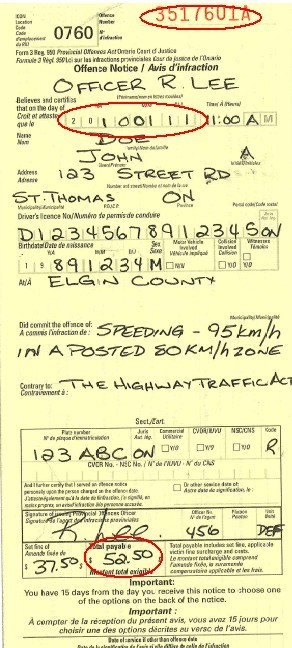 ICON
Location
Code
Code
d'emplacement
du RIII
0760
Offence
Number
3517601A
Form 3 Reg. 950 Provincial Offences Act Ontario Court of Justice
Formule 3 Règl. 950 Loi sur les infractions provinciales Cour de justice de l'Ontario
Offence Notice / Avis d'infraction
OFFICER R. LEE
Believes and certifies
that on the day of
Croit et atteste
que le
2 0 1 0 0 1 1 1
Time/À (heure)
11:00 A M
Name
Nom
DOE
JOHN
A
Address
Adresse
123 STREET RD
Number and street/Numéro et nom de la rue
ST. THOMAS ON
Municipality/Municipalité P.O./C.P. Province Postal code/Code postal
Driver's licence No/Numéro de permis de conduire
Juris
Aut. lég.
D12345678912345 ON
Birthdate/Date de naissance
Sex
Sexe
Motor Vehicle
Involved
Véhicule impliqué
Collision
Involved
Collision
Witnesses
Témoins
1 9 8 9 1 2 3 4 M
Y/N Y/O Y/O
At/À ELGIN COUNTY
Municipality/Municipalité
Did commit the offence of:
A commis l'infraction de:
SPEEDING - 95 km/h
IN A POSTED 80 KM/H ZONE
Contrary to:
Contrairement à:
THE HIGHWAY TRAFFIC ACT
Sect./l'art.
Plate number
N° de plaque d'immatriculation
Juris
Aut. lég.
Commercial
Utilitaire
CVOR/IUVU
NSC/CNS
Kode
123 ABC ON
Y/O Y/O Y/O
R
CVOR No. - NSC No. / N° de l'IUVU - N° du CNS
And I further certify that I served an offence notice
personally upon the person charged on the offence date.
Or other service date of:
Autre date de signification, le :
Signature of issuing Provincial Offences Officer
Signature de l'agent des infractions provinciales
Officer No.
N° de l'agent
Platoon
Peloton
Unit
Unité
R. Lee
456
DEF
Set fine of
Amende fixée de
$ 37.50 $
Total payable
$ 52.50
Montant total exigible
Total payable includes set fine, applicable
victim fine surcharge and costs.
Le montant total exigible comprend
l'amende fixée, la suramende
compensatoire applicable et les frais.
Important:
You have 15 days from the day you receive this notice to choose one
of the options on the back of the notice.
Important :
À compter de la réception du présent avis, vous avez 15 jours pour
choisir une des options décrites au verso de l'avis.
Date of service if other than offence date